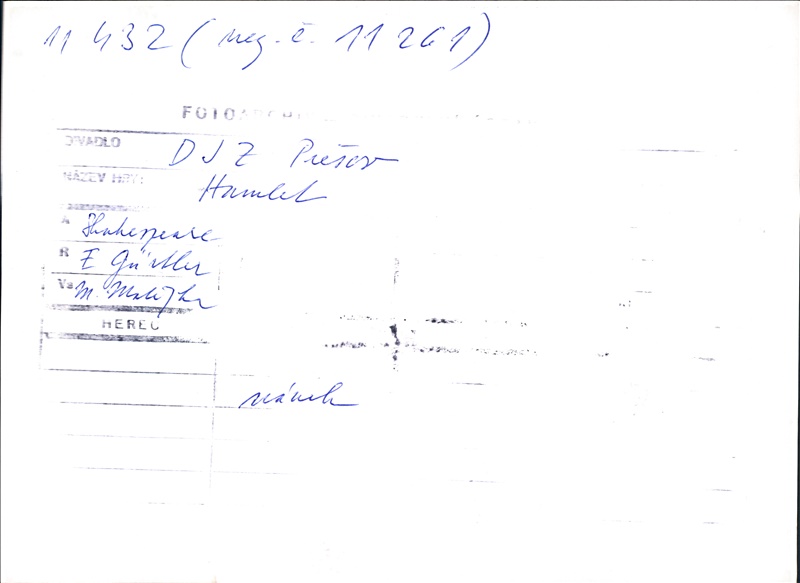 11 432 (neg. č. 11 261)
FOTOARCHI
DIVADLO DJZ Prešov
NÁZEV HRY Hamlet
A Shakespeare
R E Gürtler
M. Matejka
HEREC